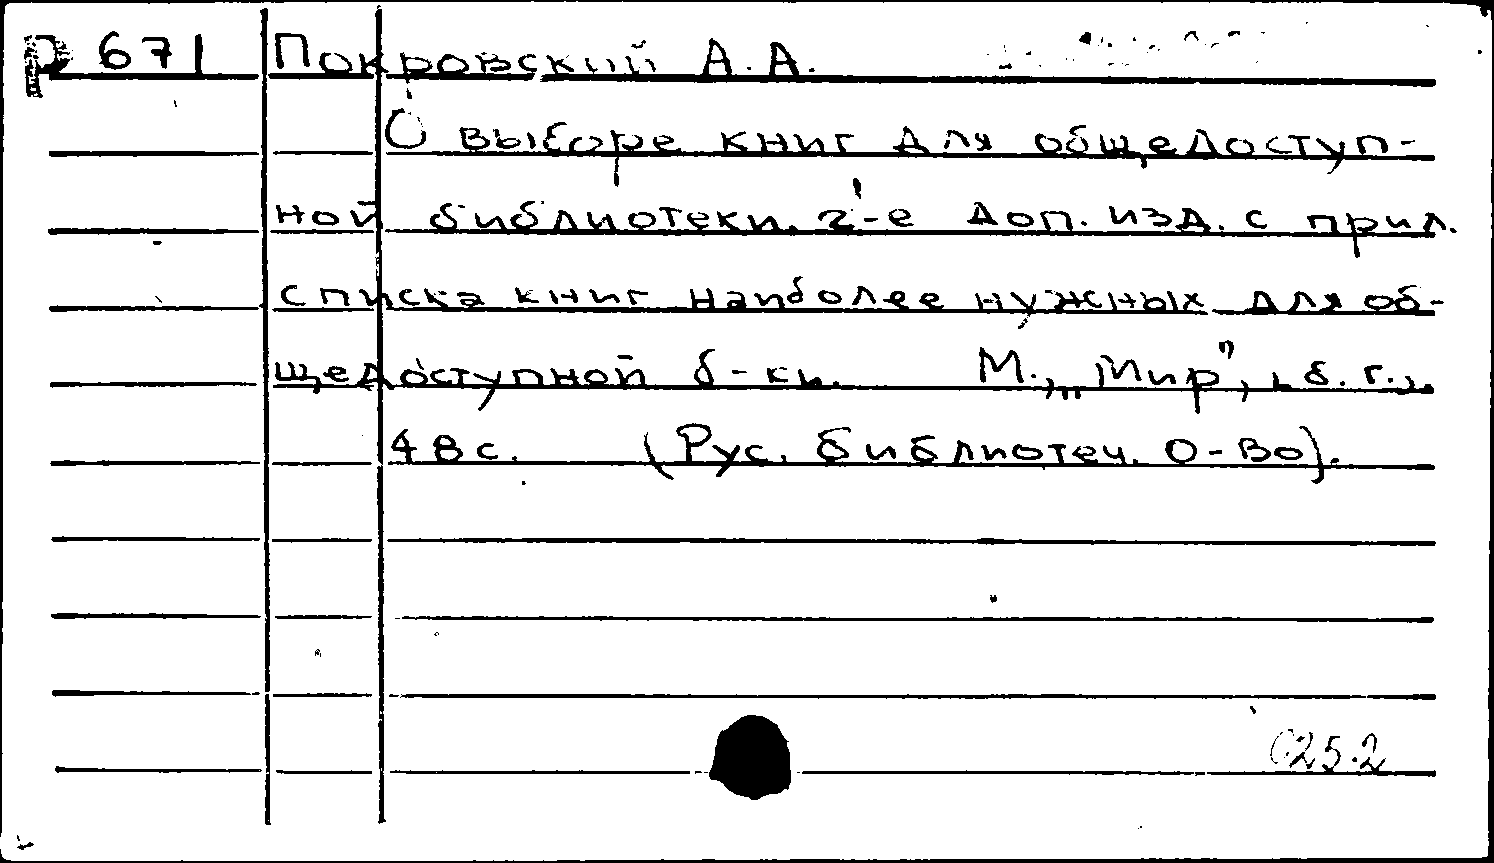 р 671 Покровский А.А.
О выборе книг для общедоступ-
ной библиотеки. 2-е доп. изд. с прил.
списка книг наиболее нужных для об-
щедоступной б-ки. М., „Мир", б.г.,
48с. (Рус. библиотеч. о-во).
025.2